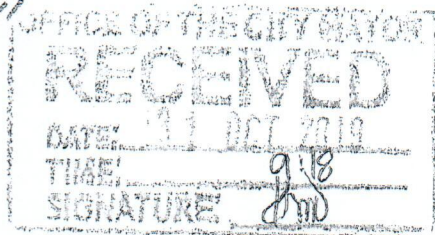 OFFICE OF THE CITY MAYOR
RECEIVED
DATE: 11 OCT 2019
TIME: 9:18
SIGNATURE: